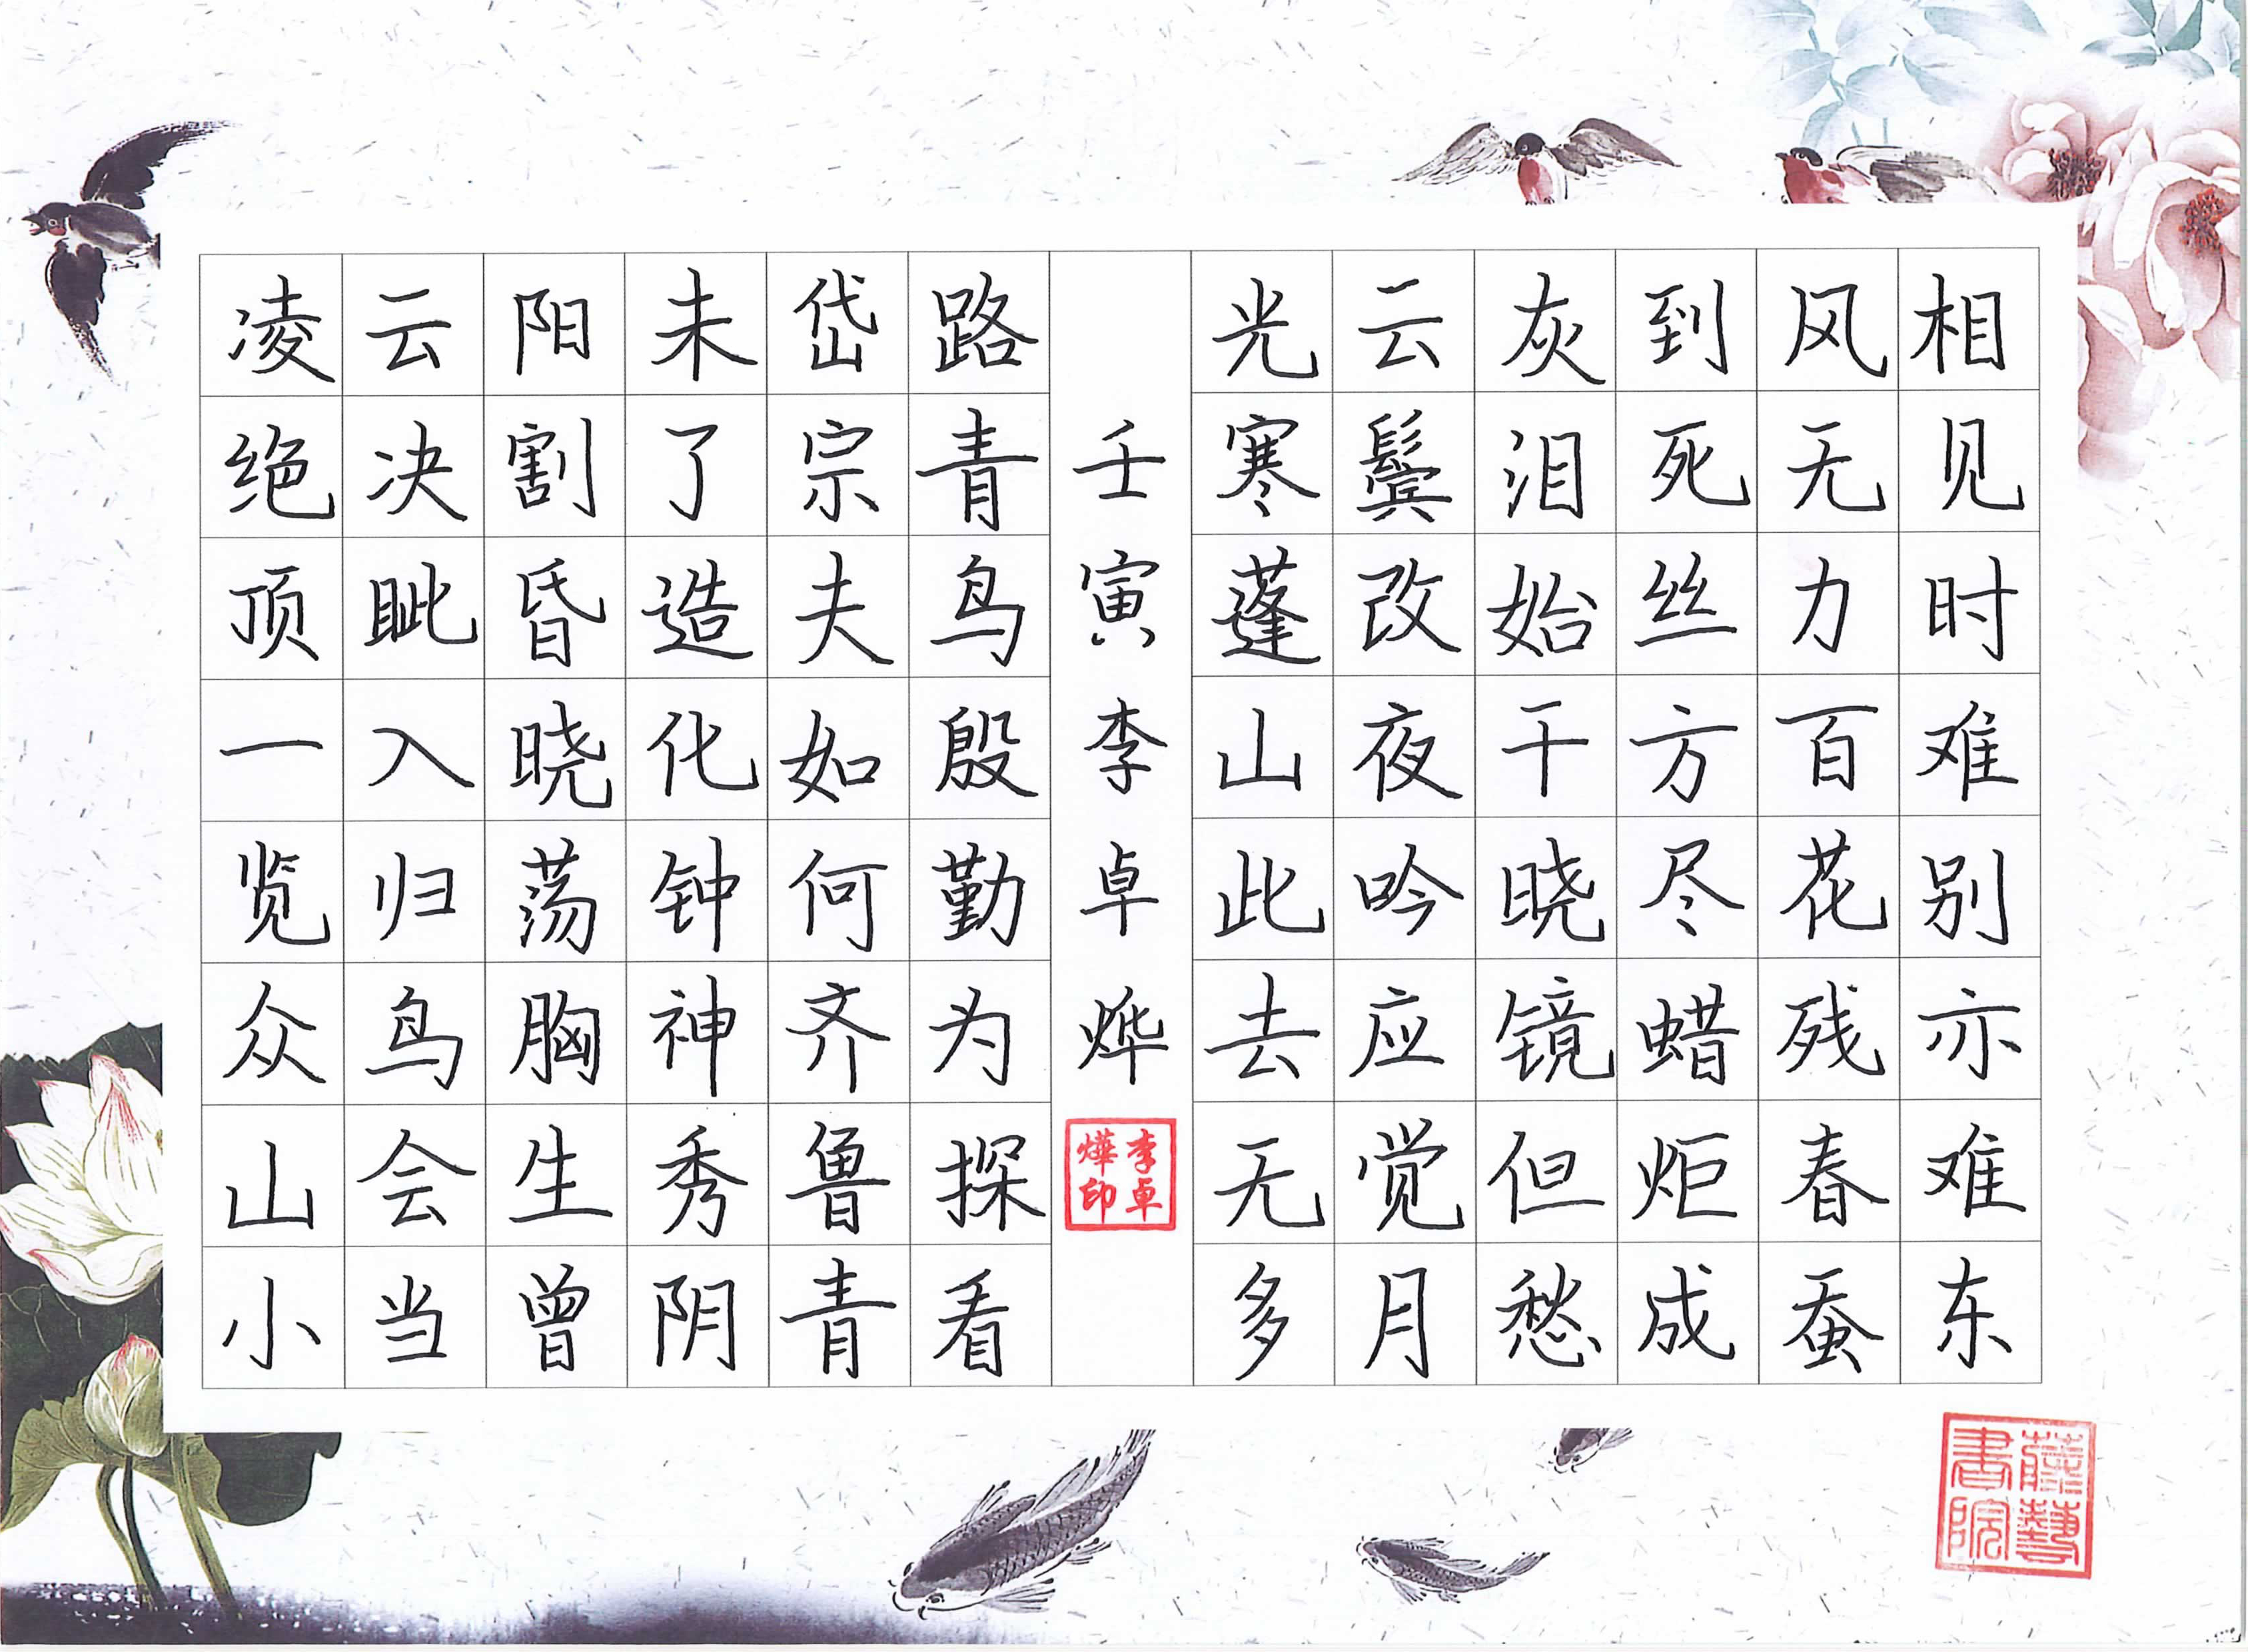 相见时难别亦难东
风无力百花残春蚕
到死丝方尽蜡炬成
灰泪始干晓镜但愁
云鬓改夜吟应觉月
光寒蓬山此去无多
壬寅李卓烨
李卓燁印
路青鸟殷勤为探看
岱宗夫如何齐鲁青
未了造化钟神秀阴
阳割昏晓荡胸生曾
云决眦入归鸟会当
凌绝顶一览众山小
藤藝書院